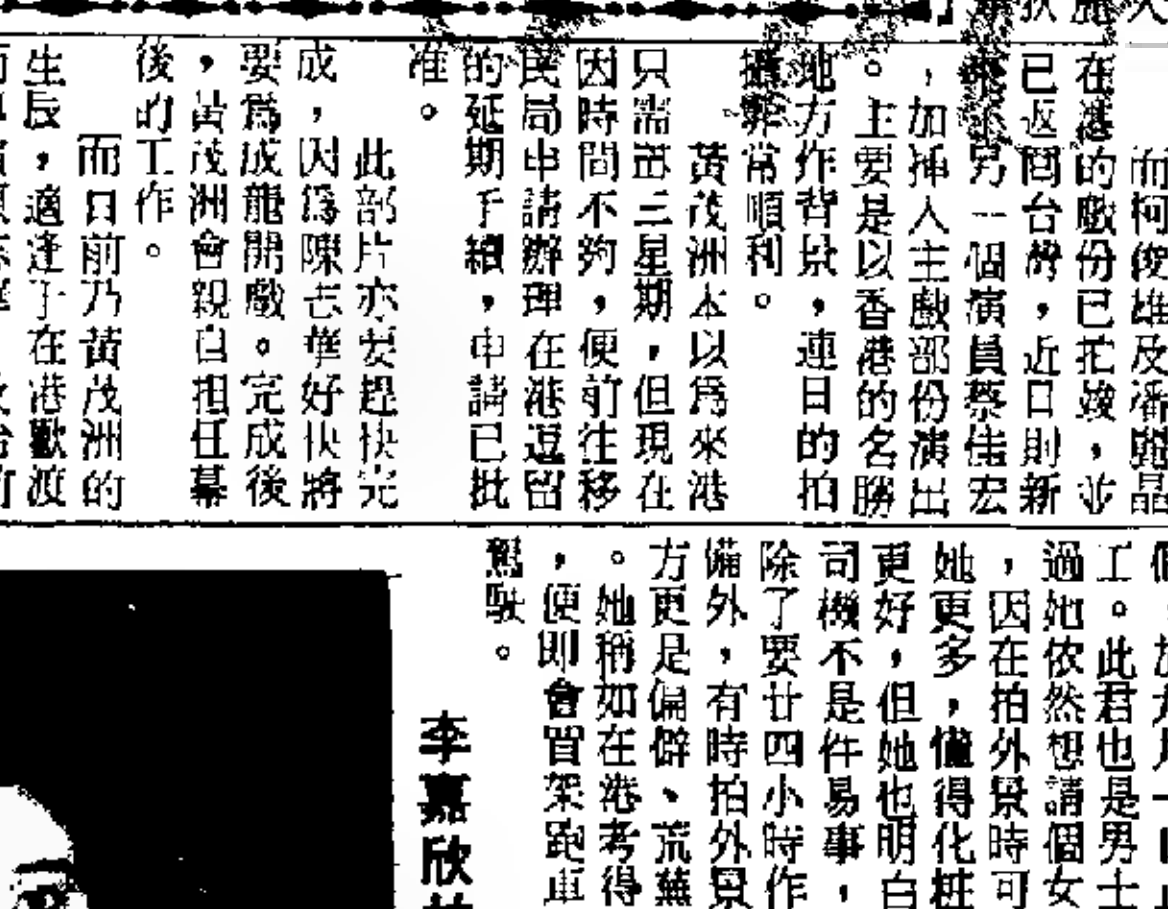 而柯俊雄及潘麗晶
在港的戲份已拍竣，並
已返回台灣，近日則新
另一個演員蔡佳宏
，加揷入主戲部份演出
。主要是以香港的名勝
地方作背景，連日的拍
攝非常順利。
黃茂洲本以爲來港
只需三星期，但現在
因時間不夠，便前往移
民局申請辦理在港逗留
的延期手續，申請已批
准。
此部片亦要趕快完
成，因爲陳志華好快將
要爲成龍開戲。完成後
，黃茂洲會親自担任幕
後的工作。
而日前乃黃茂洲的
生辰，適逢于在港歡渡
工。此君也是男士
過她依然想請個女
，因在拍外景時可
她更多，懂得化粧
更好，但她也明白
司機不是件易事，
除了要廿四小時作
備外，有時拍外景
方更是偏僻、荒蕪
。她稱如在港考得
，便即會買架跑車
駕駛。
李嘉欣